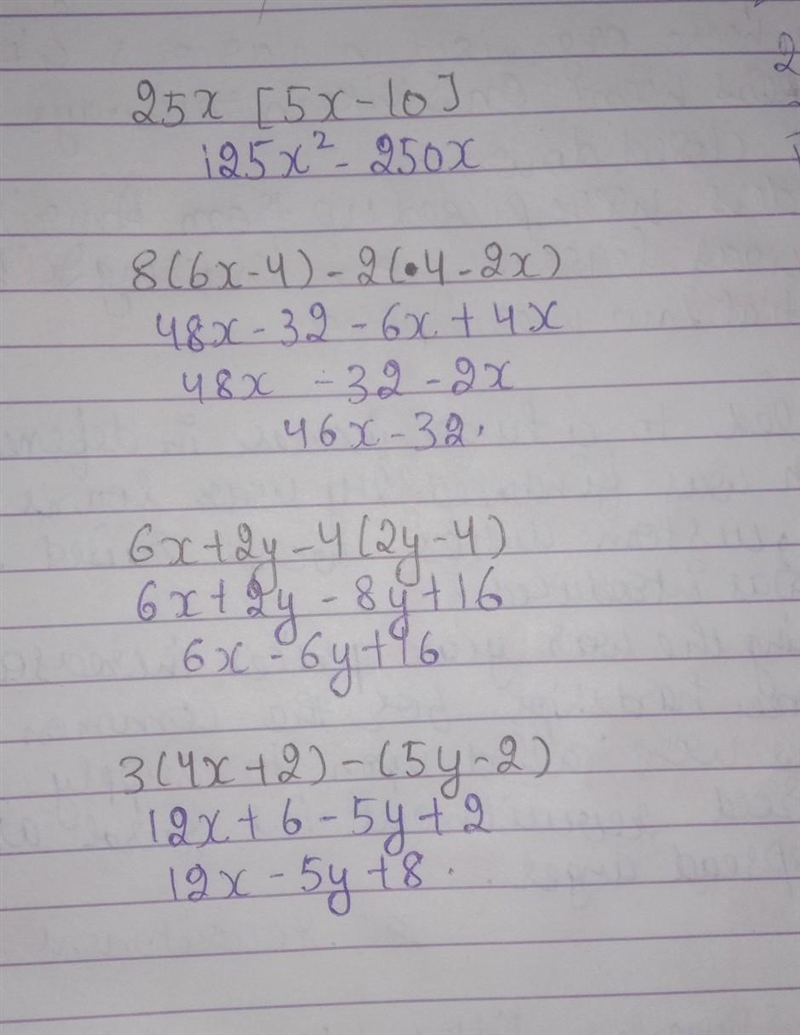 25x [5x-10]
125x² - 250x
8(6x-4) - 2(•4-2x)
48x - 32 - 6x + 4x
48x - 32 - 2x
46x - 32.
6x + 2y - 4(2y-4)
6x + 2y - 8y + 16
6x - 6y + 16
3(4x+2) - (5y-2)
12x + 6 - 5y + 2
12x - 5y + 8.
2